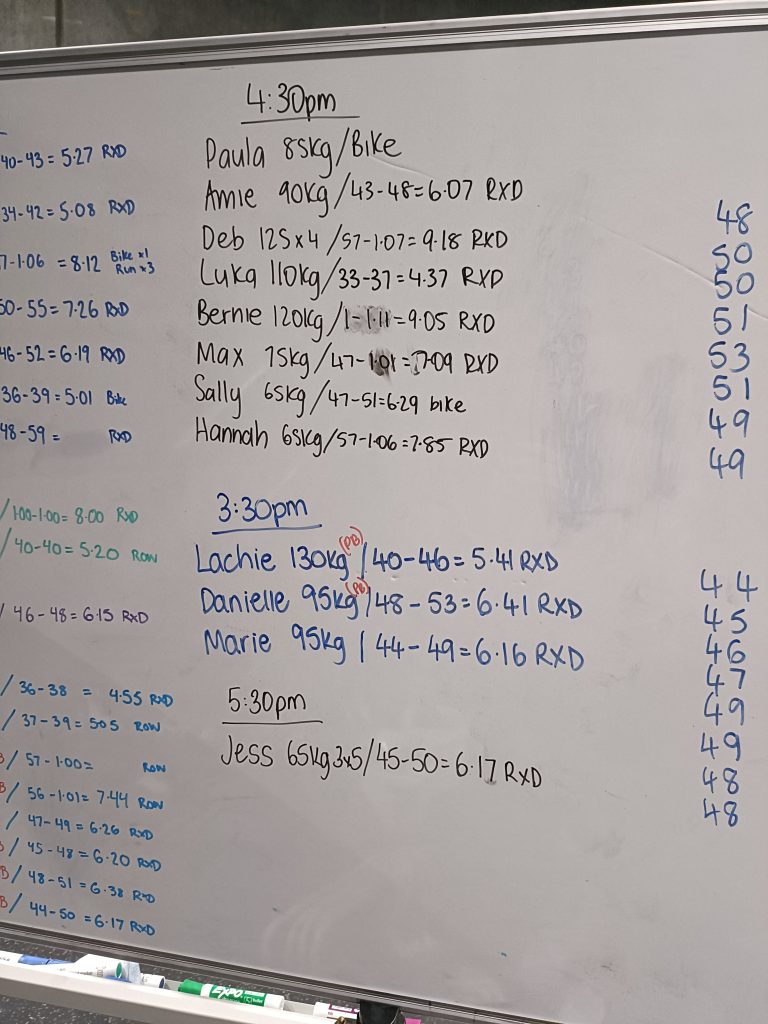 40-43 = 5.27 RXD
34-42 = 5.08 RXD
7-1.06 = 8.12 Bike x1
Run x3
50-55 = 7.26 RXD
46-52 = 6.19 RXD
36-39 = 5.01 Bike
48-59 = RXD
/ 1.00-1.00 = 8.00 RXD
/ 40-40 = 5.20 ROW
/ 46-48 = 6.15 RXD
/ 36-38 = 4.55 RXD
/ 37-39 = 505 ROW
/ 57-1.00 = ROW
B/ 56-1.01 = 7.44 ROW
/ 47-49 = 6.26 RXD
/ 45-48 = 6.20 RXD
B/ 48-51 = 6.38 RXD
B/ 44-50 = 6.17 RXD
4:30pm
Paula 85kg/Bike
Amie 90kg/43-48=6.07 RXD
Deb 125x4/57-1.07=9.18 RXD
Luka 110kg/33-37=4.37 RXD
Bernie 120kg/1-1.11=9.05 RXD
Max 75kg/47-1.01=7.09 RXD
Sally 65kg/47-51=6.29 bike
Hannah 65kg/57-1.06=7.85 RXD
3:30pm
Lachie 130kg (PB) / 40-46 = 5.41 RXD
Danielle 95kg (PB) / 48-53 = 6.41 RXD
Marie 95kg / 44-49 = 6.16 RXD
5:30pm
Jess 65kg 3x5/45-50=6.17 RXD
48
50
50
51
53
51
49
49
44
45
46
47
49
49
48
48
EXPO